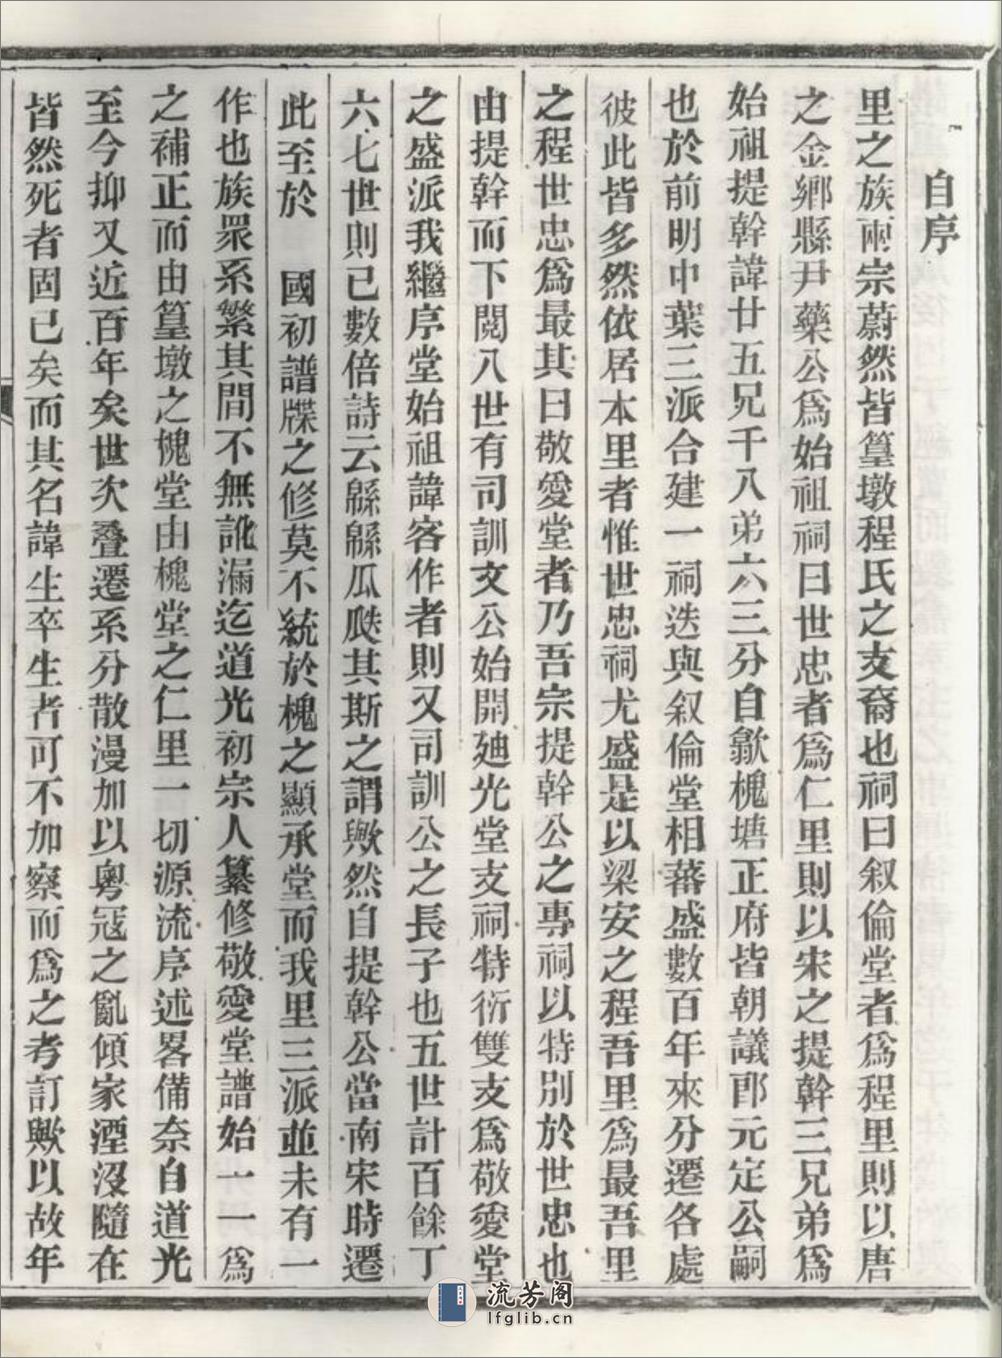 自序
里之族兩宗蔚然皆篁墩程氏之支裔也祠曰叙倫堂者爲程里則以唐
之金鄉縣尹藥公爲始祖祠曰世忠者爲仁里則以宋之提幹三兄弟爲
始祖提幹諱廿五兄千八弟六三分自歙槐塘正府皆朝議郎元定公嗣
也於前明中葉三派合建一祠迭與叙倫堂相蕃盛數百年來分遷各處
彼此皆多然依居本里者惟世忠祠尤盛是以梁安之程吾里爲最吾里
之程世忠爲最其曰敬愛堂者乃吾宗提幹公之專祠以特別於世忠也
由提幹而下閱八世有司訓文公始開廸光堂支祠特衍雙支爲敬愛堂
之盛派我繼序堂始祖諱客作者則又司訓公之長子也五世計百餘丁
六七世則已數倍詩云緜緜瓜瓞其斯之謂歟然自提幹公當南宋時遷
此至於 國初譜牒之修莫不統於槐之顯承堂而我里三派並未有一
作也族眾系繁其間不無訛漏迄道光初宗人纂修敬愛堂譜始一一爲
之補正而由篁墩之槐堂由槐堂之仁里一切源流序述畧備奈自道光
至今抑又近百年矣世次叠遷系分散漫加以粵寇之亂傾家湮沒隨在
皆然死者固已矣而其名諱生卒生者可不加察而爲之考訂歟以故年
流芳阁
lfglib.cn